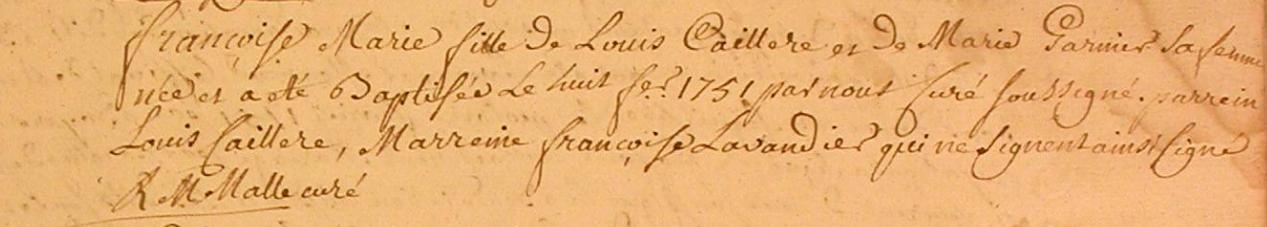 françoise Marie fille de Louis Caillere et de Marie Garnier sa femme
née et a eté Baptisée Le huit fer. 1751 par nous Curé soussigné. parrein
Louis Caillere, Marreine françoise Lavandier qui ne signent ainsi signé
R M Malle curé